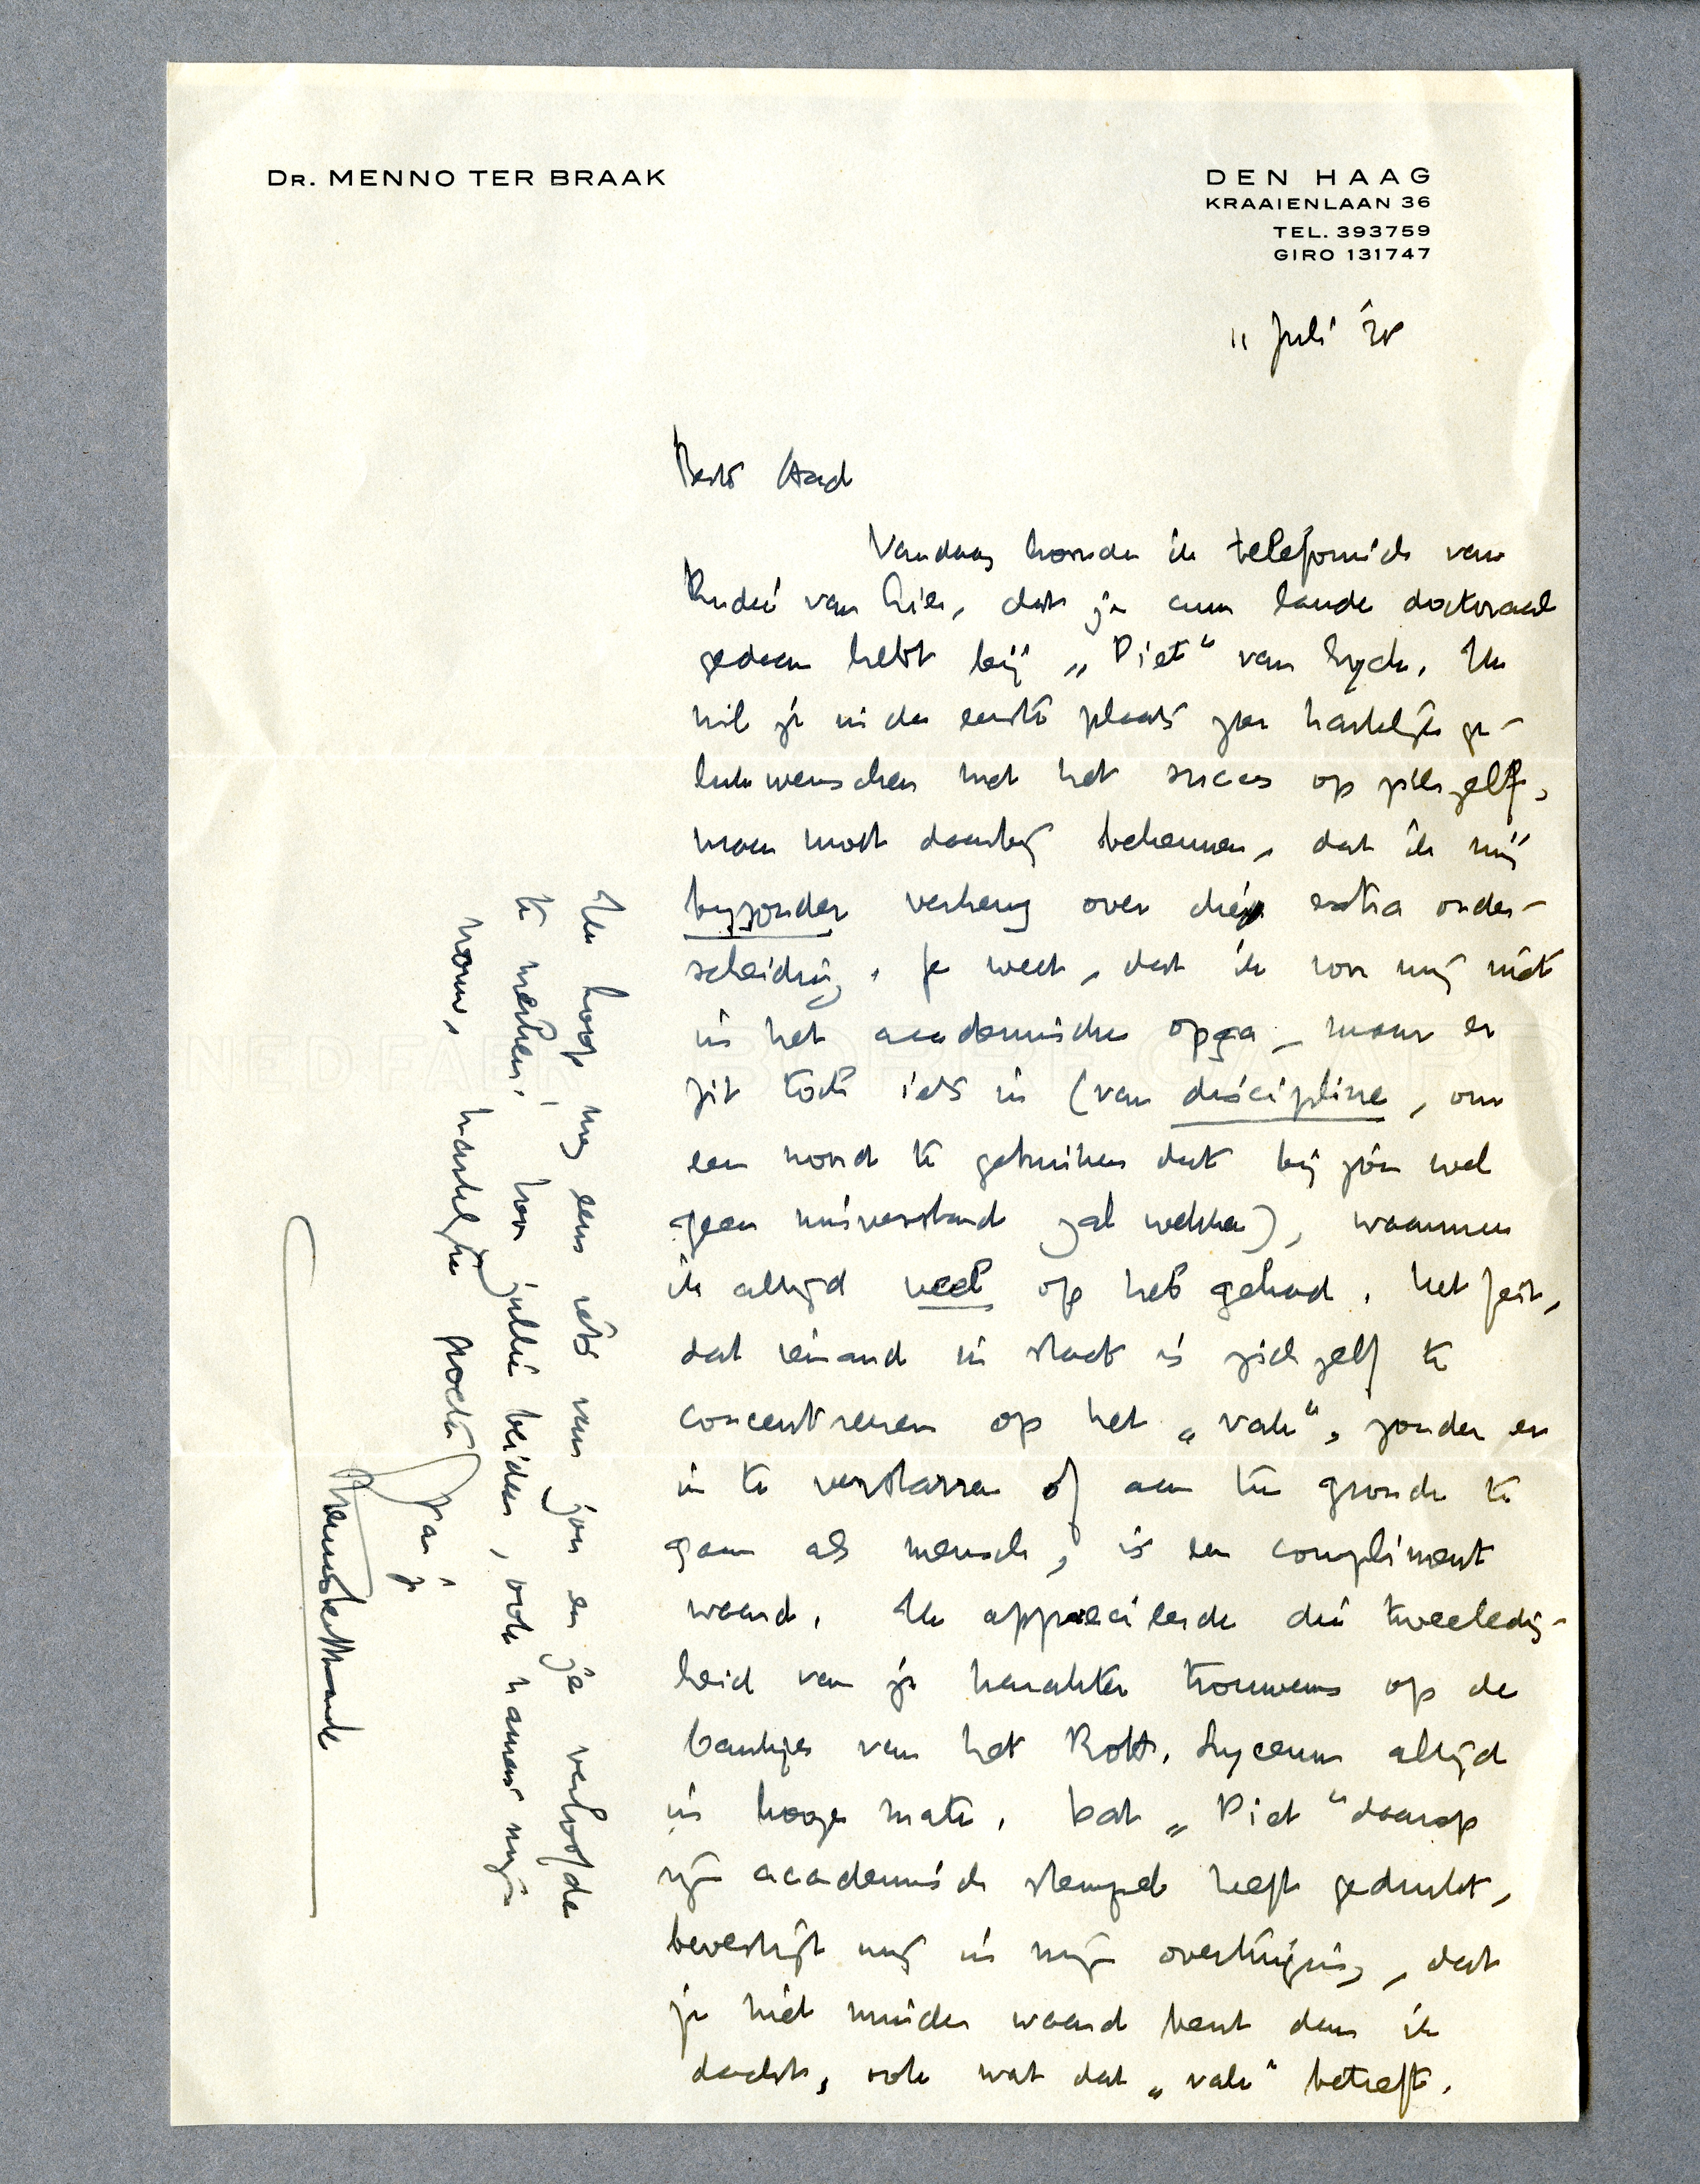 DR. MENNO TER BRAAK
DEN HAAG
KRAAIENLAAN 36
TEL. 393759
GIRO 131747
11 Juli '38
Beste Aad
Vandaag hoorde ik telefonisch van
Rudie van Lier, dat je cum laude doctoraal
gedaan hebt bij „Piet“ van Eyck. Ik
wil je in de eerste plaats zeer hartelijk ge-
lukwenschen met het succes op zichzelf,
maar moet daarbij bekennen, dat ik mij
bijzonder verheug over die extra onder-
scheiding. Je weet, dat ik voor mij niet
in het academische opga, maar er
zit toch iets in (van discipline, om
een woord te gebruiken dat bij jou wel
geen misverstand zal wekken), waarmee
ik altijd veel op heb gehad. Het feit,
dat iemand in staat is zichzelf te
concentreeren op het „vak“, zonder er
in te verstarren of aan ten gronde te
gaan als mensch, is een compliment
waard. Ik apprecieerde die tweeledig-
heid van je karakter trouwens op de
bankjes van het Rott. Lyceum altijd
in hooge mate. Dat „Piet“ daarop
zijn academisch stempel heeft gedrukt,
bevestigt mij in mijn overtuiging, dat
je niet minder waard bent dan ik
dacht, ook wat dat „vak“ betreft.
Ik hoop nog eens iets van jou en je verloofde
te merken; voor jullie beiden, ook namens mijn
vrouw, hartelijke groeten
van je
Menno ter Braak